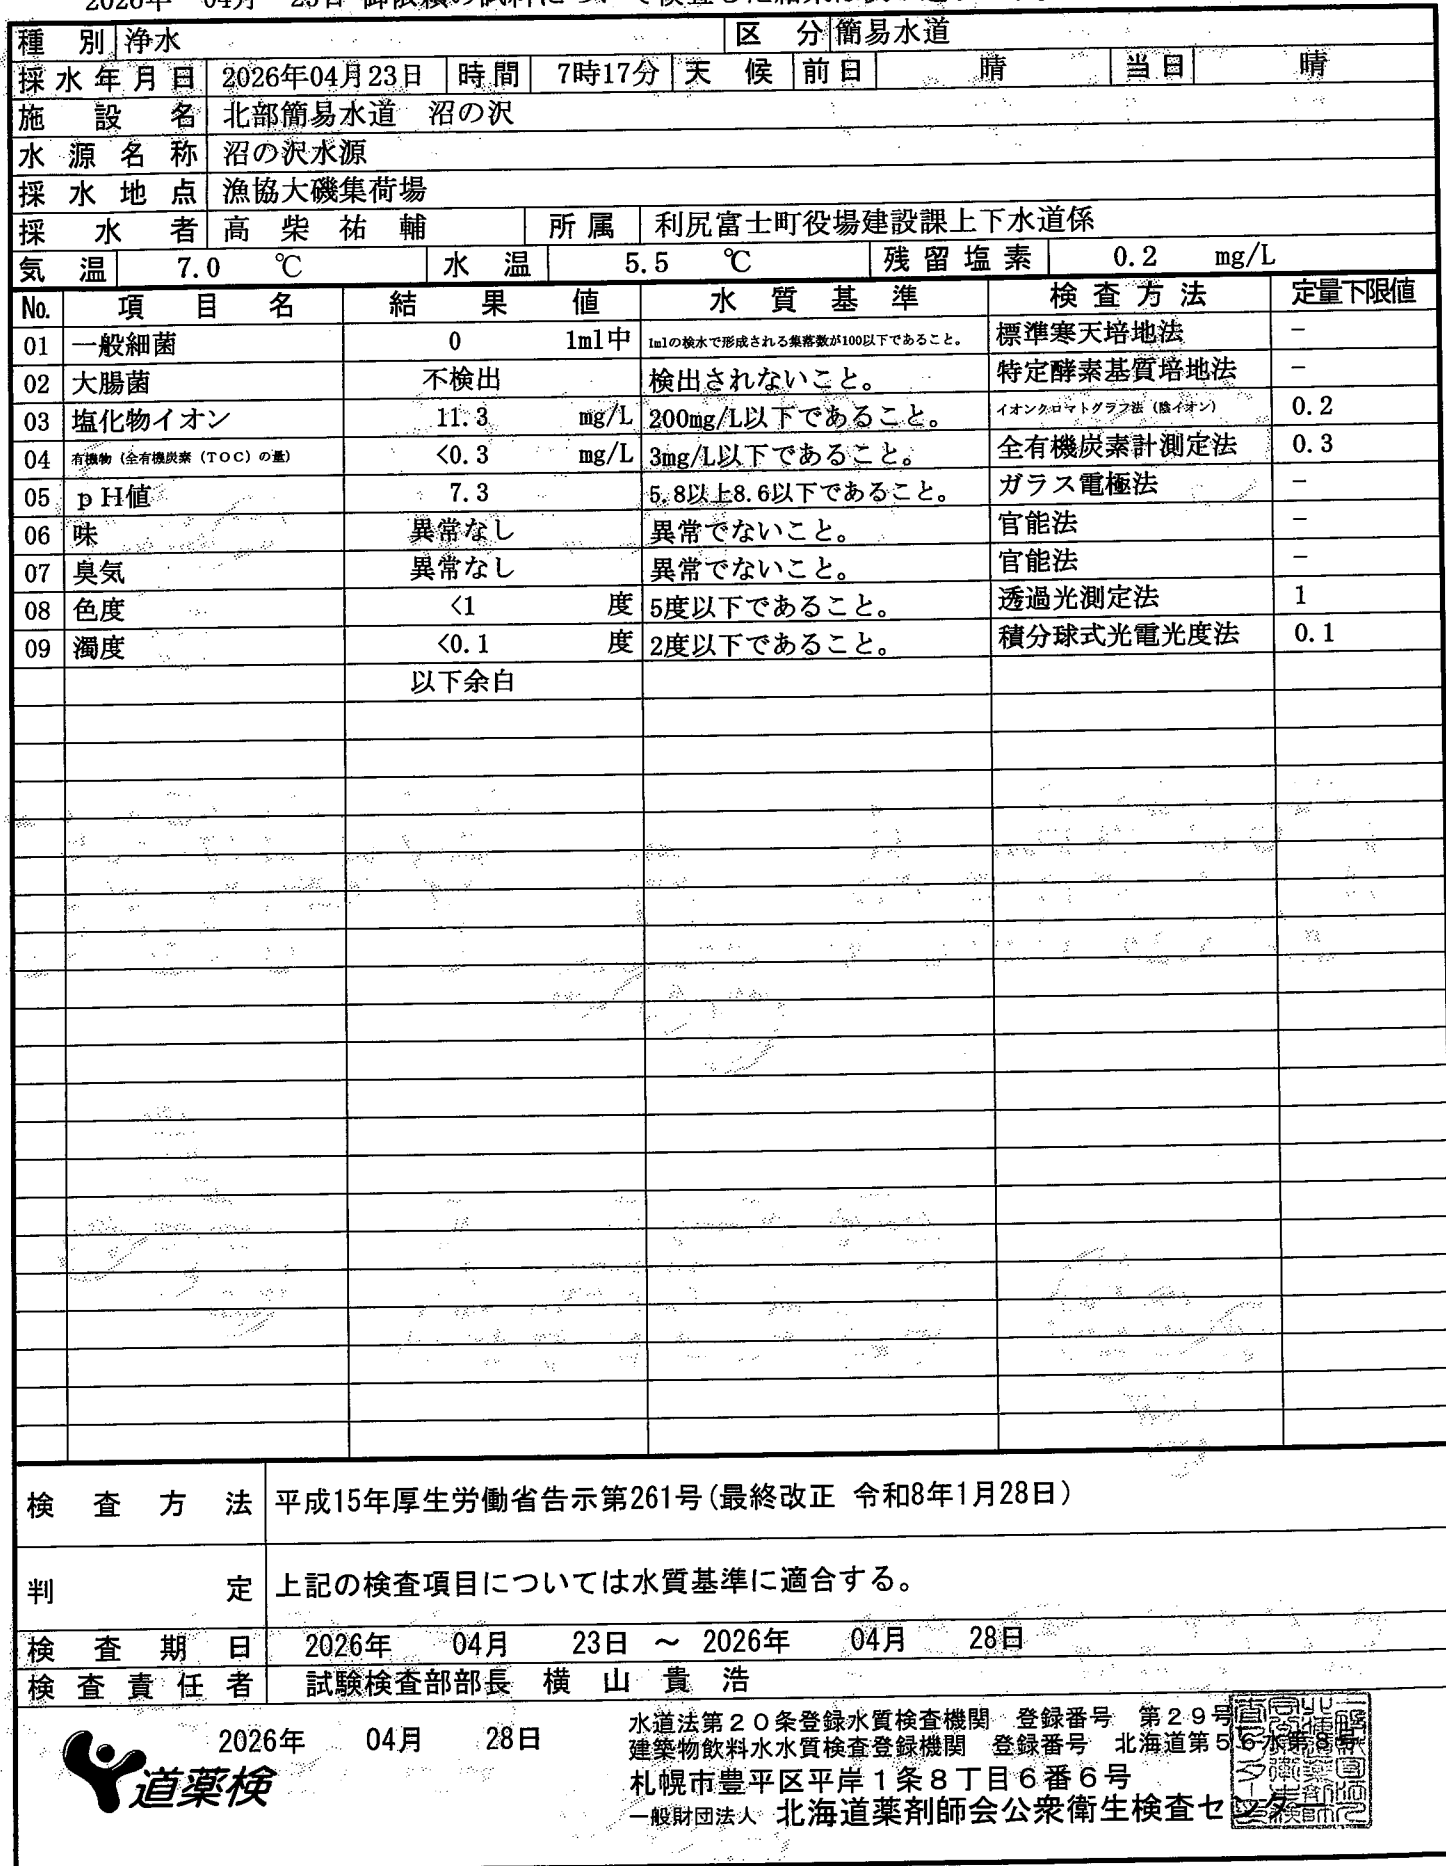 2026年 04月 23日 御依頼の試料について検査した結果は次の
種 別 浄水 区 分 簡易水道
採水年月日 2026年04月23日 時間 7時17分 天 候 前日 晴 当日 晴
施 設 名 北部簡易水道 沼の沢
水 源 名 称 沼の沢水源
採 水 地 点 漁協大磯集荷場
採 水 者 高 柴 祐 輔 所属 利尻富士町役場建設課上下水道係
気 温 7.0 ℃ 水 温 5.5 ℃ 残留塩素 0.2 mg/L
No. 項 目 名 結 果 値 水 質 基 準 検査方法 定量下限値
01 一般細菌 0 1ml中 1mlの検水で形成される集落数が100以下であること。 標準寒天培地法 －
02 大腸菌 不検出 検出されないこと。 特定酵素基質培地法 －
03 塩化物イオン 11.3 mg/L 200mg/L以下であること。 イオンクロマトグラフ法（陰イオン） 0.2
04 有機物（全有機炭素（TOC）の量） <0.3 mg/L 3mg/L以下であること。 全有機炭素計測定法 0.3
05 pH値 7.3 5.8以上8.6以下であること。 ガラス電極法 －
06 味 異常なし 異常でないこと。 官能法 －
07 臭気 異常なし 異常でないこと。 官能法 －
08 色度 <1 度 5度以下であること。 透過光測定法 1
09 濁度 <0.1 度 2度以下であること。 積分球式光電光度法 0.1
以下余白
検 査 方 法 平成15年厚生労働省告示第261号(最終改正 令和8年1月28日)
判 定 上記の検査項目については水質基準に適合する。
検 査 期 日 2026年 04月 23日 ～ 2026年 04月 28日
検査責任者 試験検査部部長 横 山 貴 浩
2026年 04月 28日
道薬検
水道法第２０条登録水質検査機関 登録番号 第２９号
建築物飲料水水質検査登録機関 登録番号 北海道第５６水第８号
札幌市豊平区平岸１条８丁目６番６号
一般財団法人 北海道薬剤師会公衆衛生検査センター